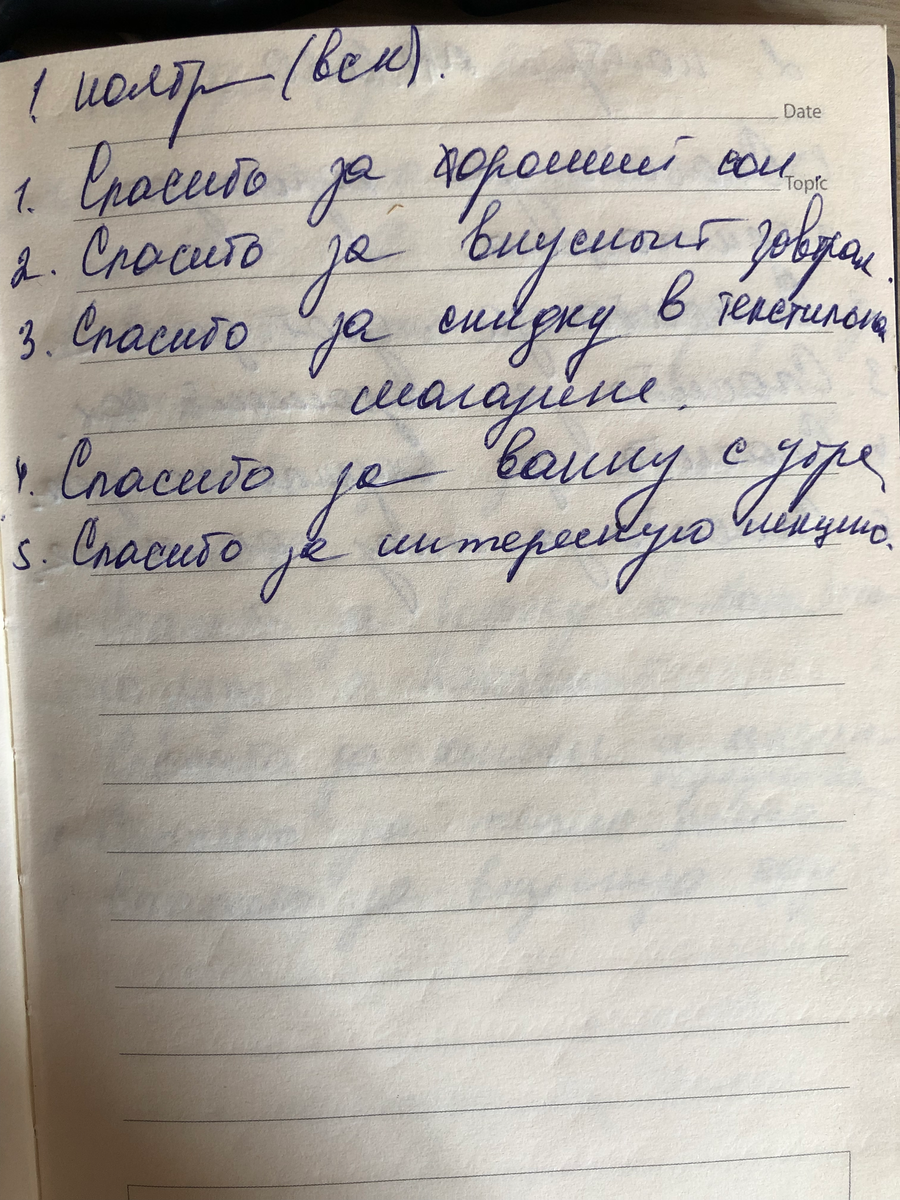 1 ноябрь (вск).
Date
1. Спасибо за хороший сон.
Topic
2. Спасибо за вкусный завтрак.
3. Спасибо за скидку в текстильном
магазине.
4. Спасибо за ванну с утра
5. Спасибо за интересную лекцию.